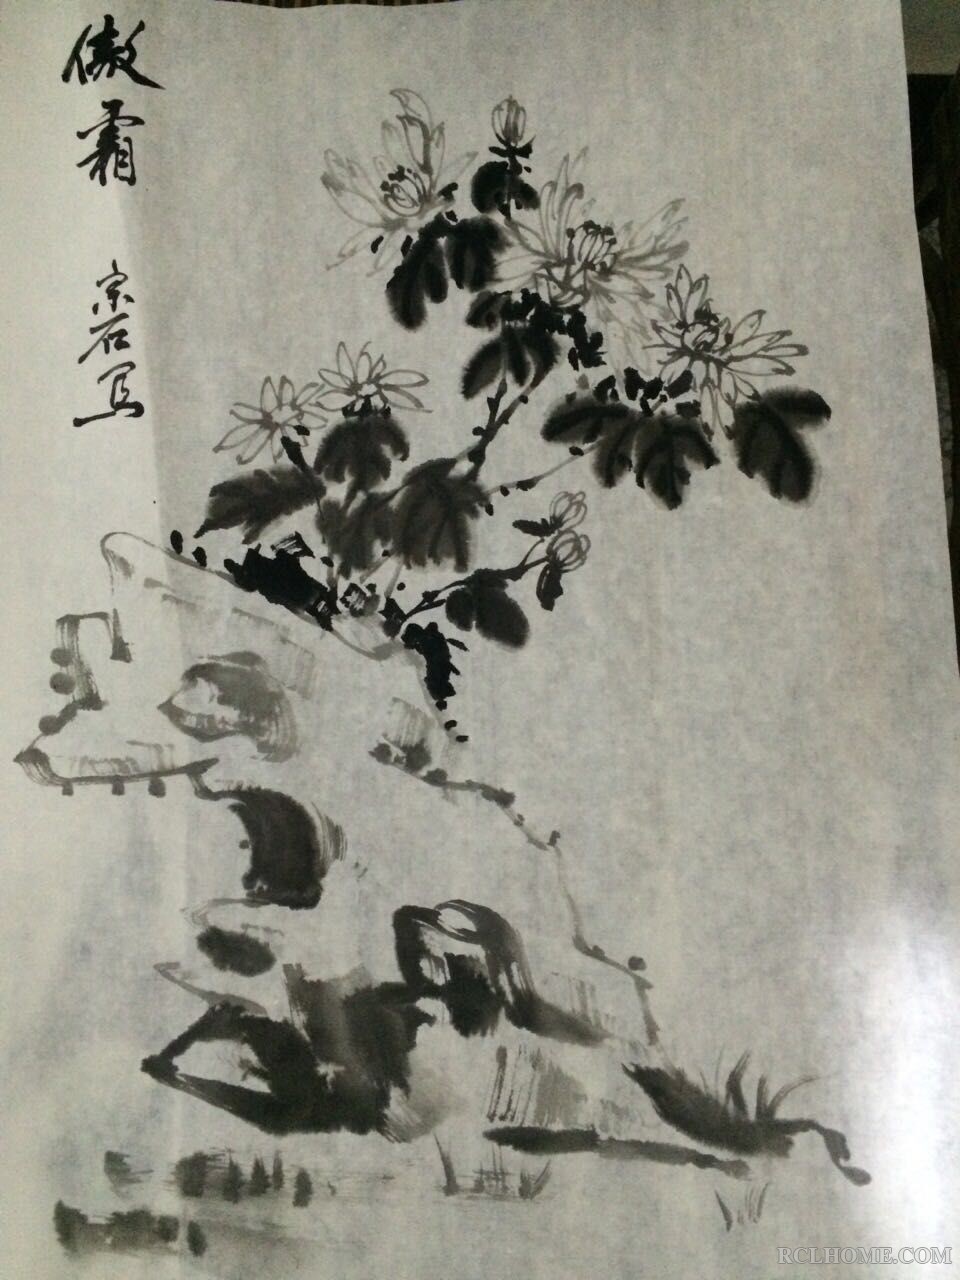 傲霜
宗石写
RCLHOME.COM